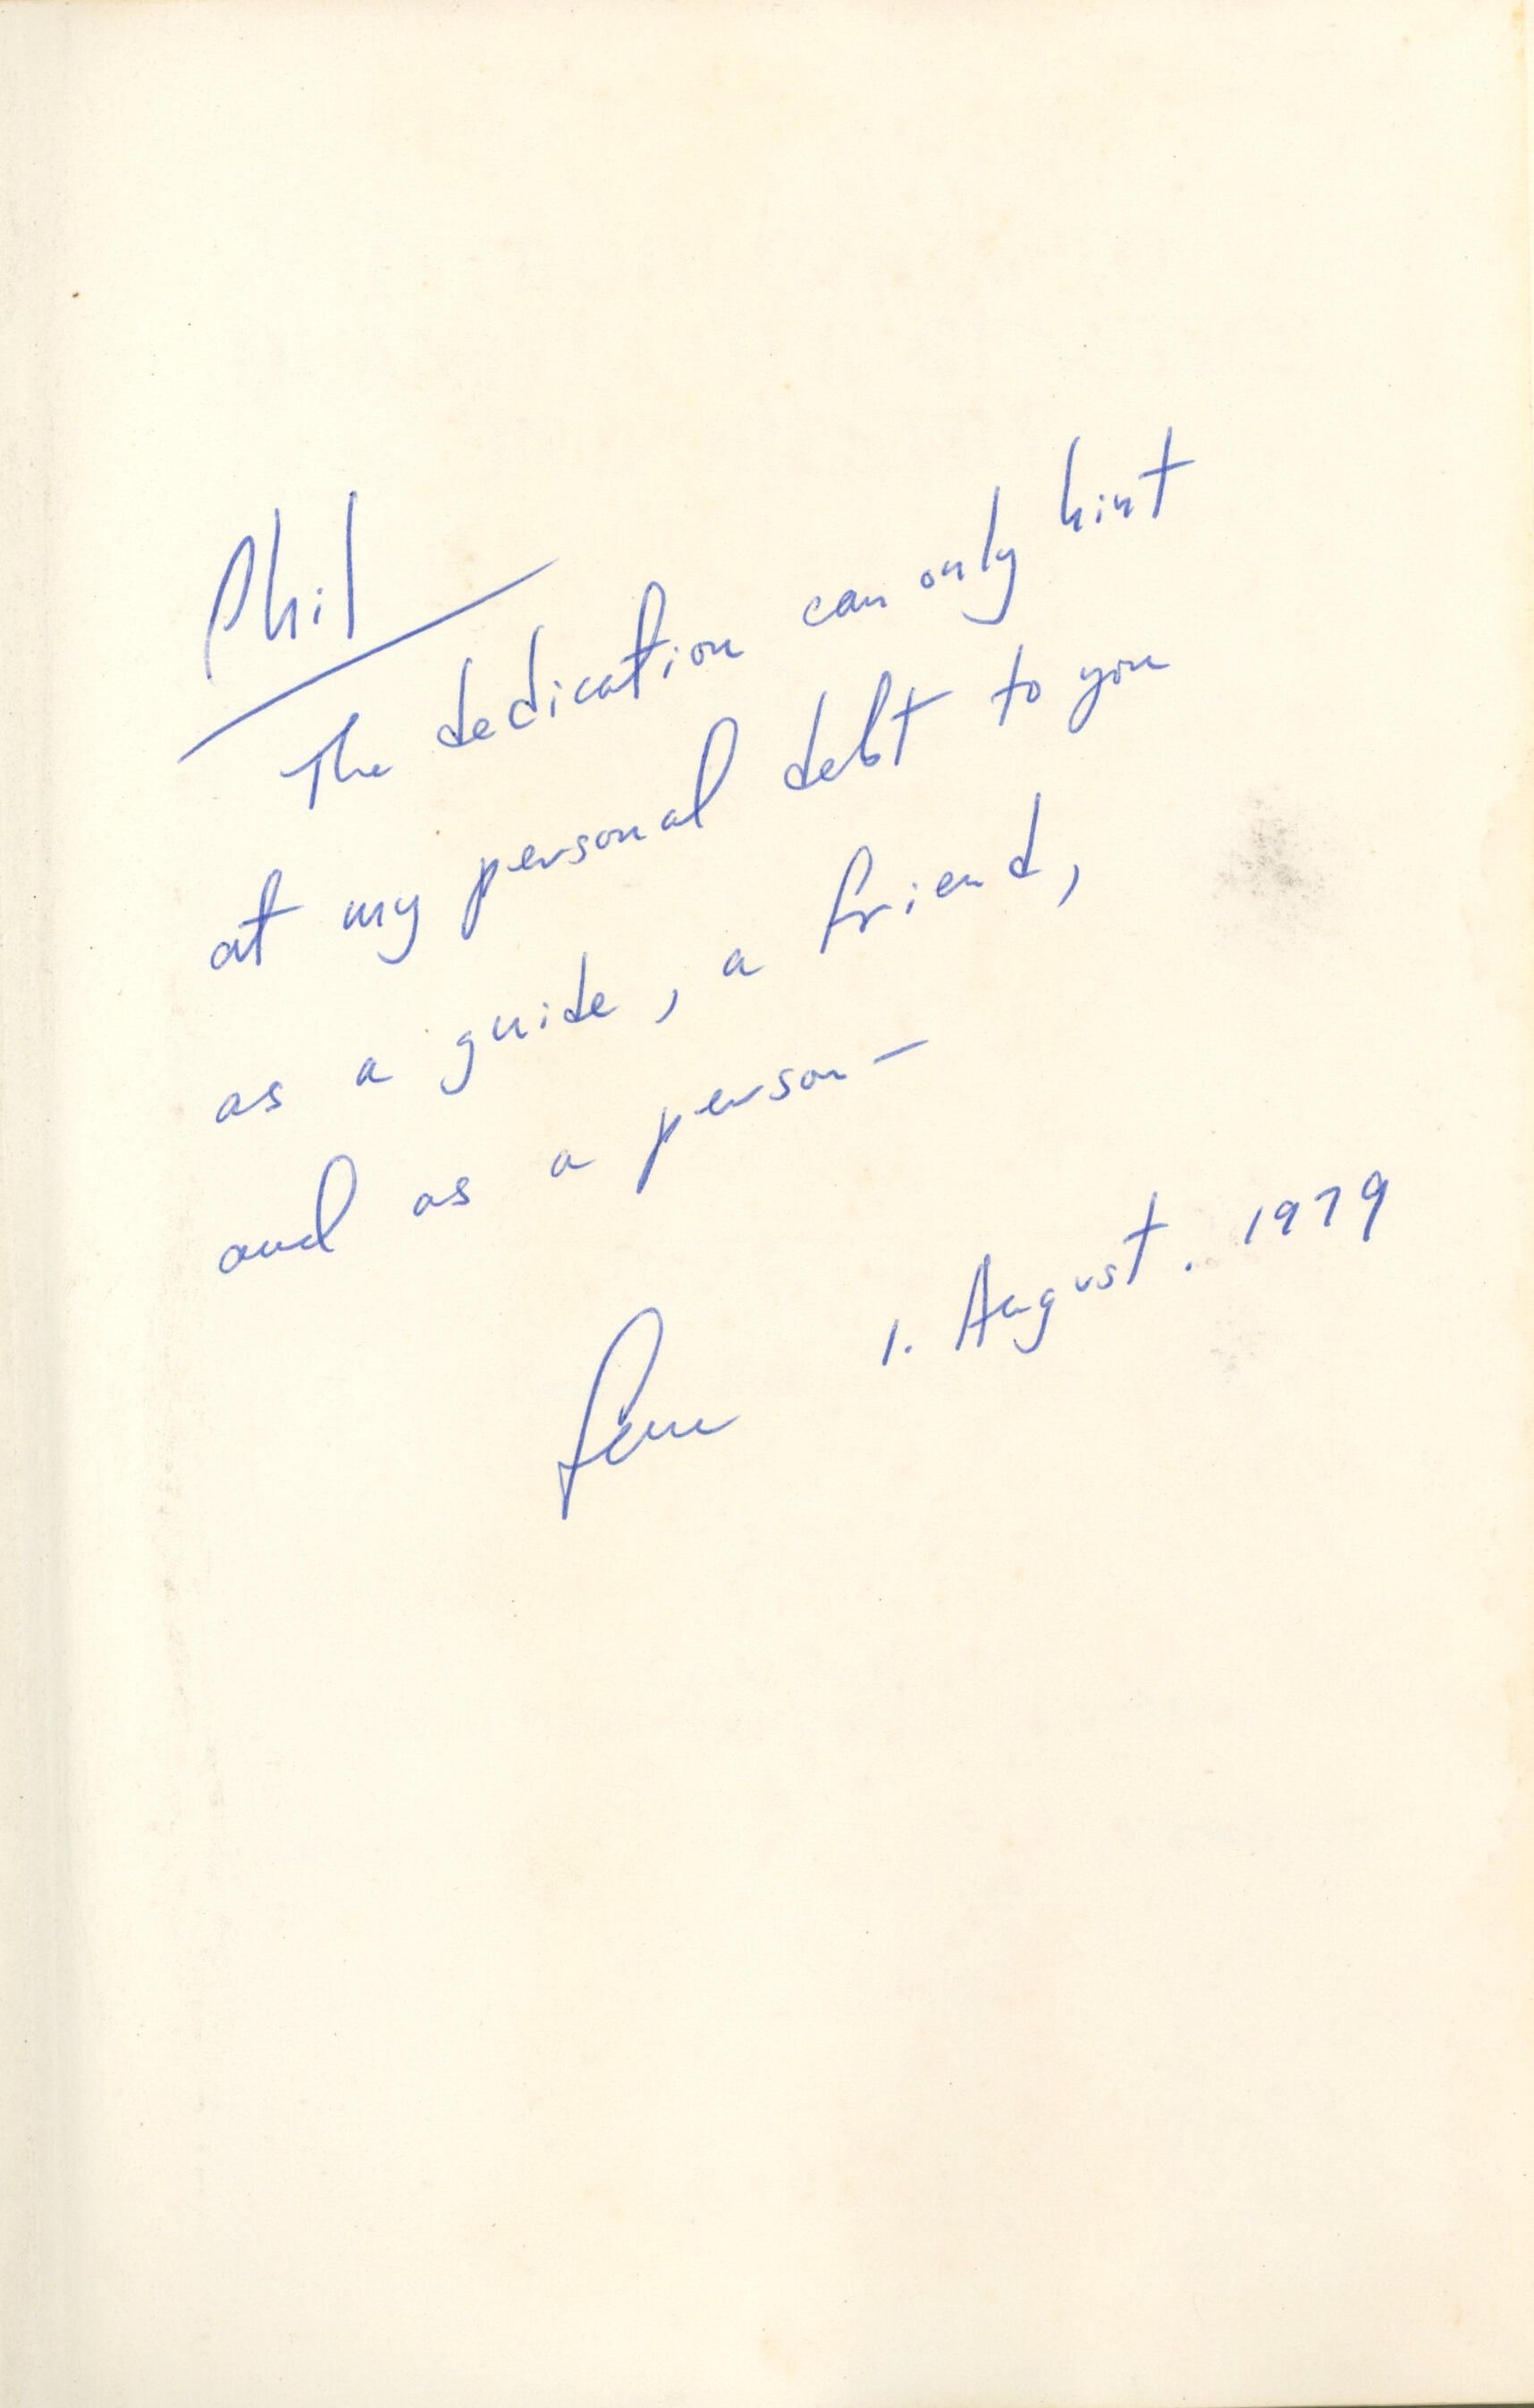 Phil
The dedication can only hint
at my personal debt to you
as a guide, a friend,
and as a person —
1. August. 1979